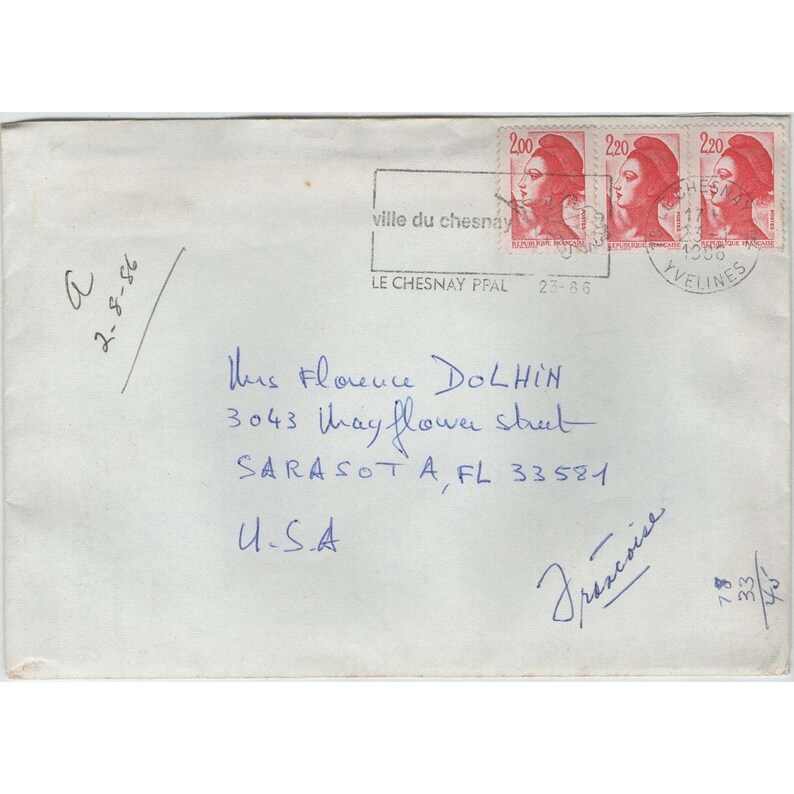 2,00 2,20 2,20
POSTES POSTES
REPUBLIQUE FRANÇAISE REPUBLIQUE FRANÇAISE REPUBLIQUE FRANÇAISE
ville du chesnay
LE CHESNAY PPAL 23-86
LE CHESNAY
17 H
23
1986
YVELINES
a
2-8-86
Mrs Florence DOLHIN
3043 Mayflower street
SARASOTA, FL 33581
U.S.A
Françoise
33